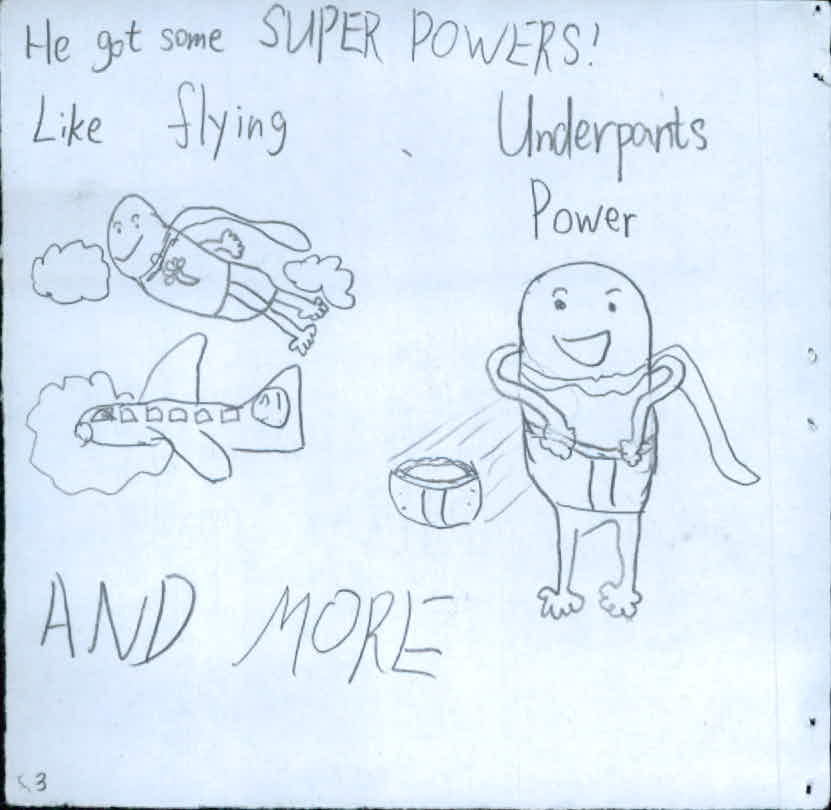 He got some SUPER POWERS!
Like flying
Underpants
Power
AND MORE
3